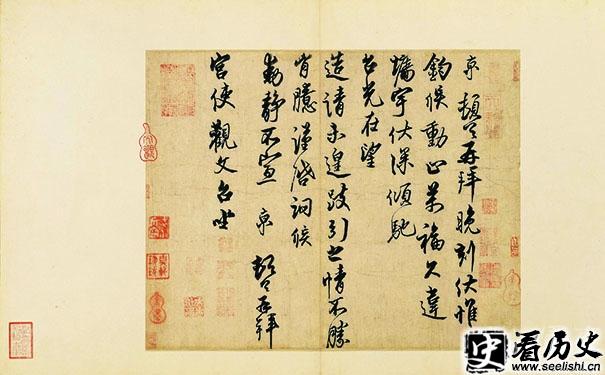 京 頓首再拜晚刻伏惟
鈞候動止萬福久違
牆宇伏深傾馳
台光在望
造請未遑跂引之情不勝
胷臆謹啓詗候
動靜不宣 京 頓首再拜
宮使觀文台坐
史看历史
www.seelishi.cn